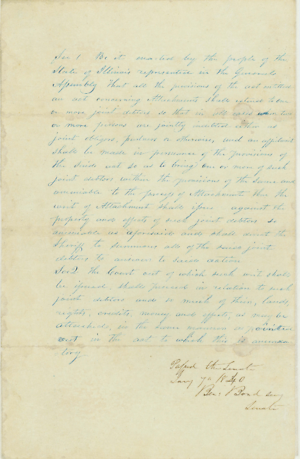 Sec 1 Be it enacted by the people of the
State of Illinois represented in the General
Assembly That all the provisions of the act entitled
an act concerning Attachments shall extend to
or more joint debtors so that in all cases when two
or more persons are jointly indebted either as
joint obligors, partners or otherwise, and an affidavit
shall be made as provided in the provisions of
the said act so as to bring one or more of such
joint debtors within the provisions of the same and
amenable to the process of Attachment then the
writ of Attachment shall issue against the
property and effects of such joint debtors so
amenable as aforesaid and shall direct the
Sheriff to summon all of the said joint
debtors to answer to said action
Sec 2 The Court out of which such writ shall
be issued shall proceed in relation to such
joint debtors and so much of their lands,
rights, credits, money and effects, as may be
attached, in the same manner as pointed
out in the act to which this is amenda
tory
Passed the Senate
Jany 7th 1840
Ben: Bond Secy
Senate